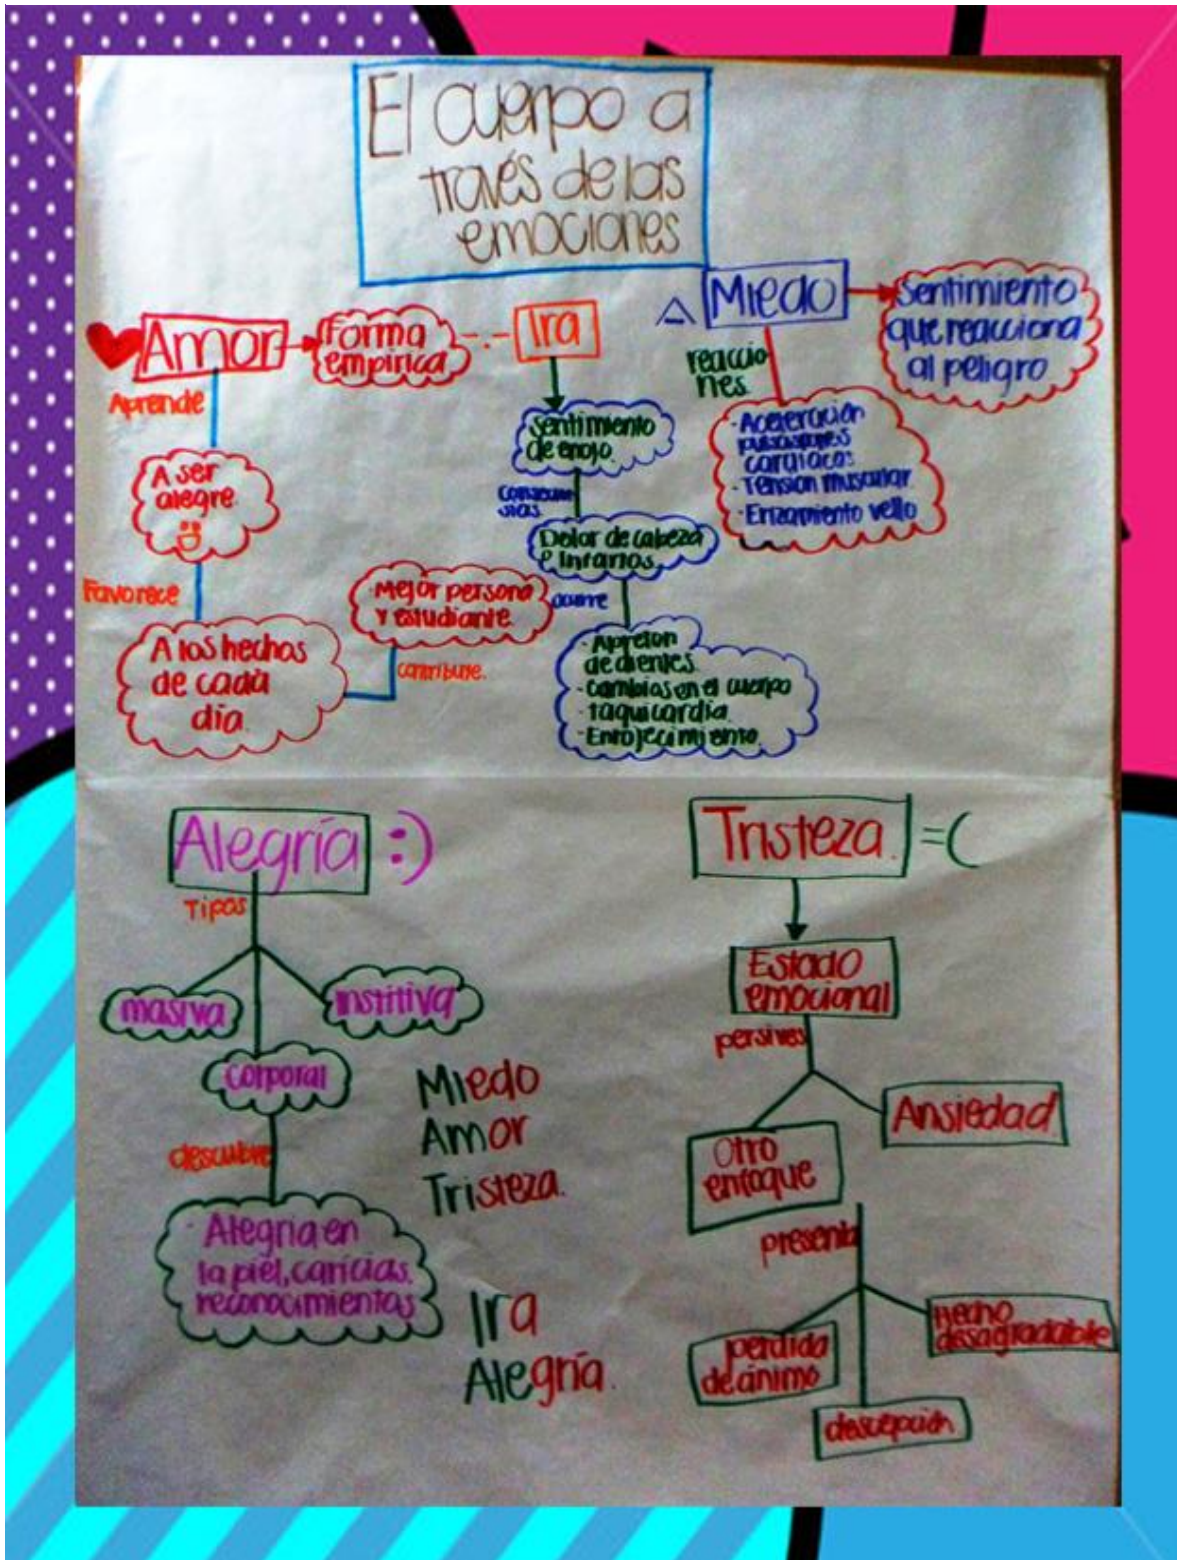 El cuerpo a
través de las
emociones
Amor
Forma
empírica
Aprende
A ser
alegre
Favorece
A los hechos
de cada
día.
contribuye.
Mejor persona
y estudiante.
Ira
Sentimiento
de enojo.
Dolor de cabeza
e infartos.
ocurre
· Apreton
de dientes.
· Cambios en el cuerpo
· taquicardia
· Enrojecimiento.
Miedo
Sentimiento
que reacciona
al peligro
reaccio
nes.
· Aceleración
pulsaciones
cardiacas
· Tension muscular
· Erizamiento vello
Alegría :)
Tipos
masiva
institiva
corporal
descubre
· Alegria en
la piel, caricias.
reconocimientos.
Miedo
Amor
Tristeza.
Ira
Alegría.
Tristeza. =(
Estado
emocional
persives
Otro
enfoque
Ansiedad.
presenta
perdida
de ánimo
Hecho
dessagradable
descepción